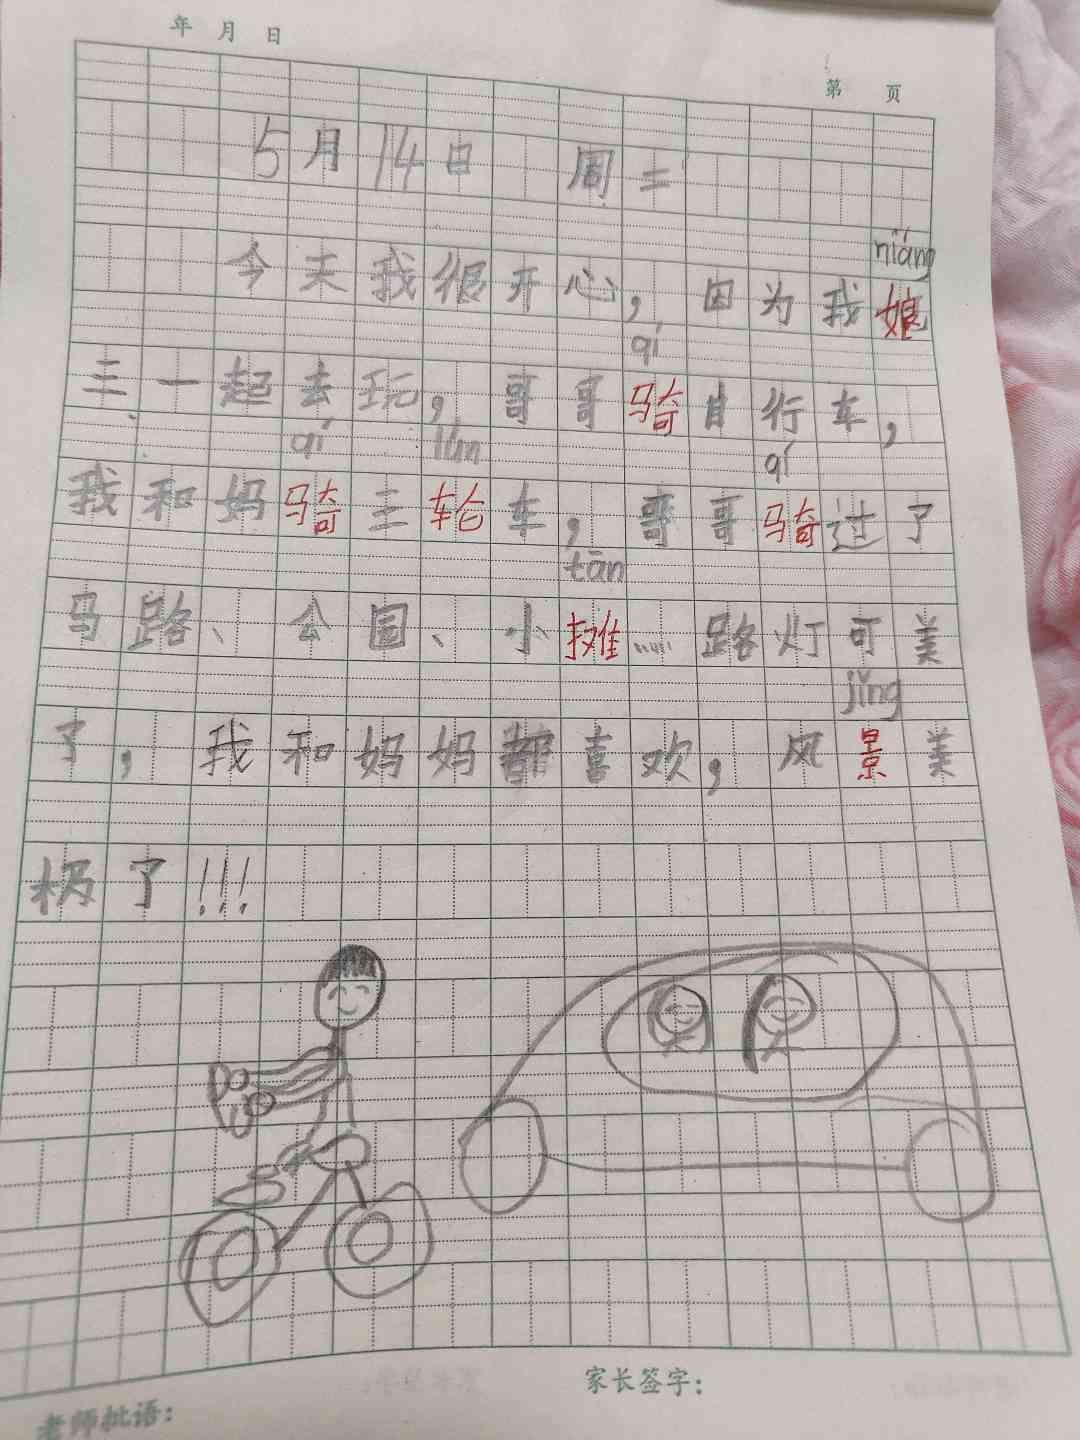 年 月 日
第 页
5月14日 周二
niáng
今天我很开心，因为我娘
qí
三一起去玩，哥哥骑自行车，
qí lún qí
我和妈骑三轮车，哥哥骑过了
tān
马路、公园、小摊……路灯可美
jǐng
了，我和妈妈都喜欢，风景美
极了!!!
家长签字：
老师批语：